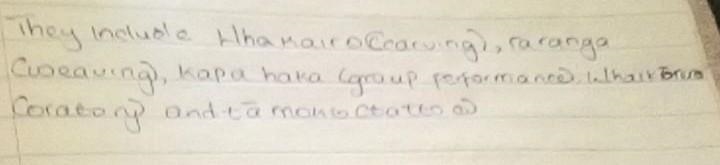 They include Whakairo (carving), raranga
(weaving), kapa haka (group performance), Whaikōrero
(oratory) and tā moko (tattoo)